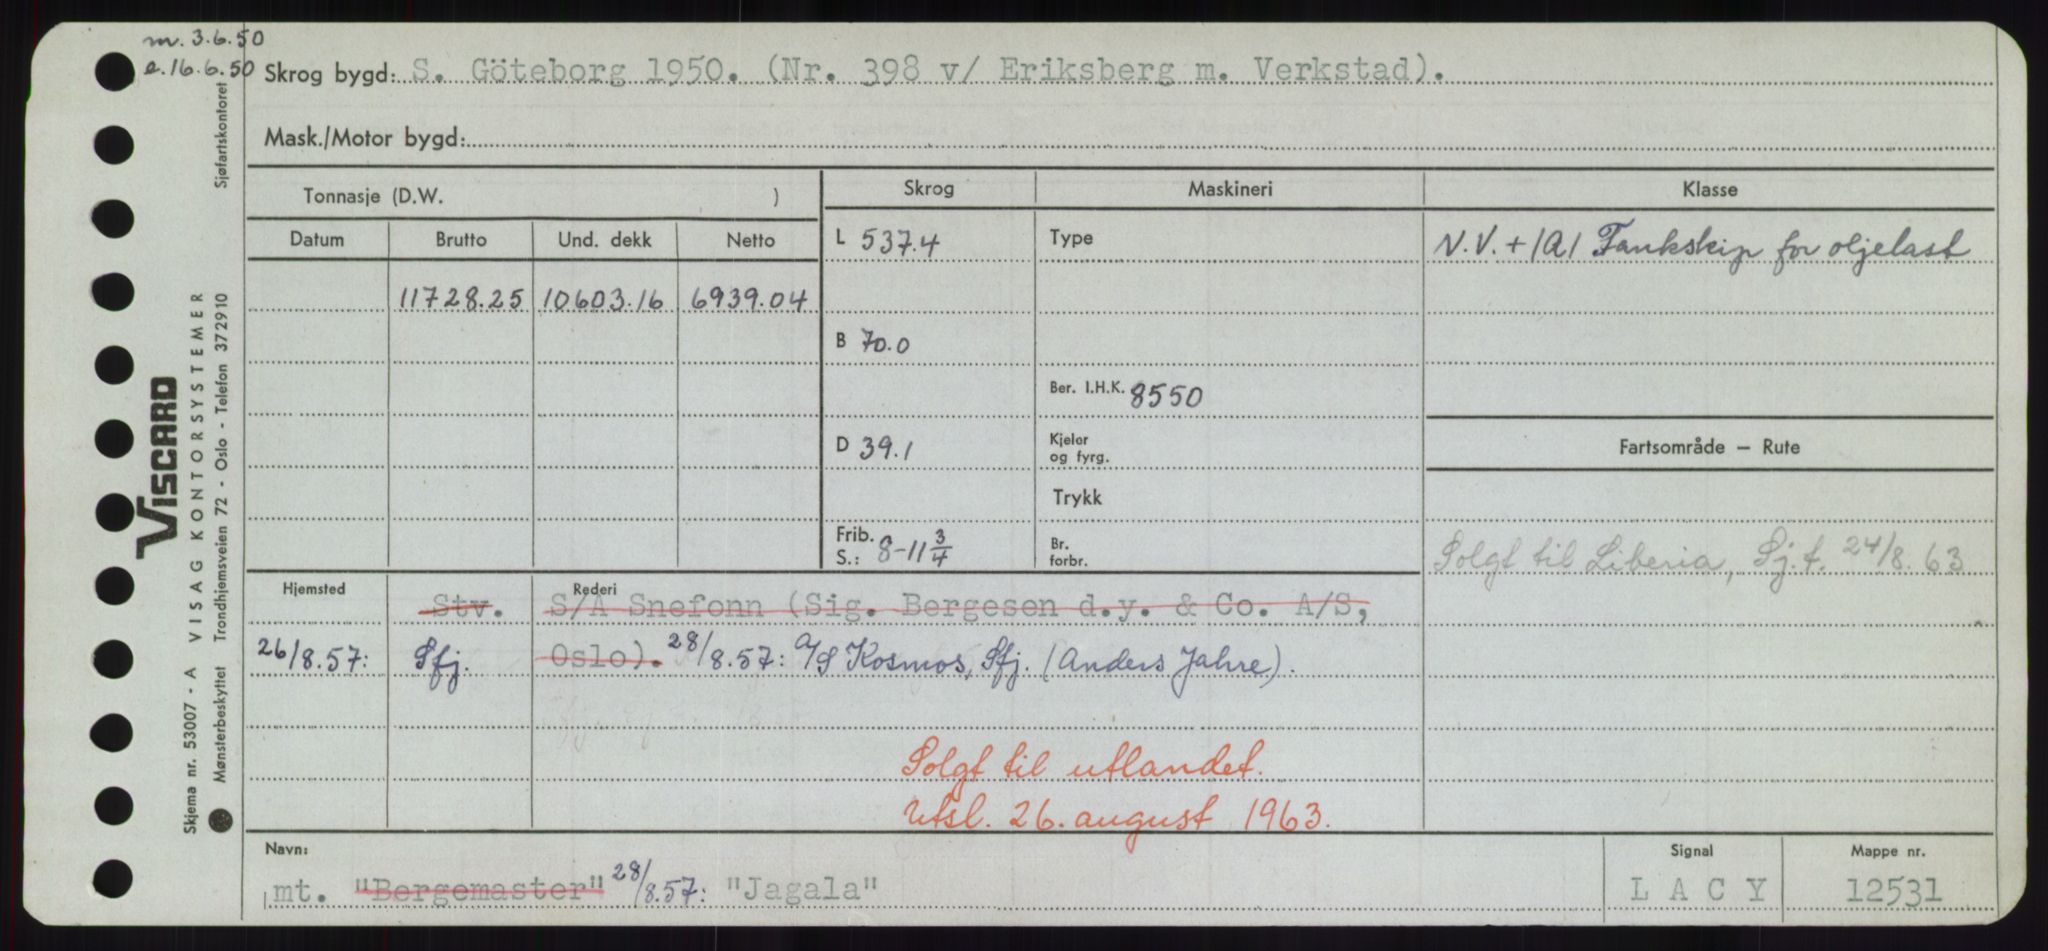 m. 3.6.50
e. 16.6.50
Skrog bygd: S. Göteborg 1950. (Nr. 398 v/ Eriksberg m. Verkstad).
Mask./Motor bygd:
Tonnasje (D.W. )
Skrog
Maskineri
Klasse
Datum
Brutto
Und. dekk
Netto
L 537.4
Type
N.V. + 1A1 Tankskip for oljelast
11728.25 10603.16 6939.04
B 70.0
Ber. I.H.K. 8550
D 39.1
Kjeler
og fyrg.
Fartsområde — Rute
Trykk
Frib.
S.: 8-11 3/4
Br.
forbr.
Solgt til Liberia, Sj.t. 24/8.63
Hjemsted
Rederi
Stv. S/A Snefonn (Sig. Bergesen d.y. & Co. A/S,
26/8.57: Sfj. Oslo). 28/8.57: A/S Kosmos, Sfj. (Anders Jahre).
Solgt til utlandet.
Utsl. 26. august 1963.
Navn:
mt. "Bergemaster" 28/8.57: "Jagala"
Signal
L A C Y
Mappe nr.
12531
VISCARD
Skjema nr. 53007 - A VISAG KONTORSYSTEMER
Mønsterbeskyttet Trondhjemsveien 72 - Oslo - Telefon 372910 Sjøfartskontoret